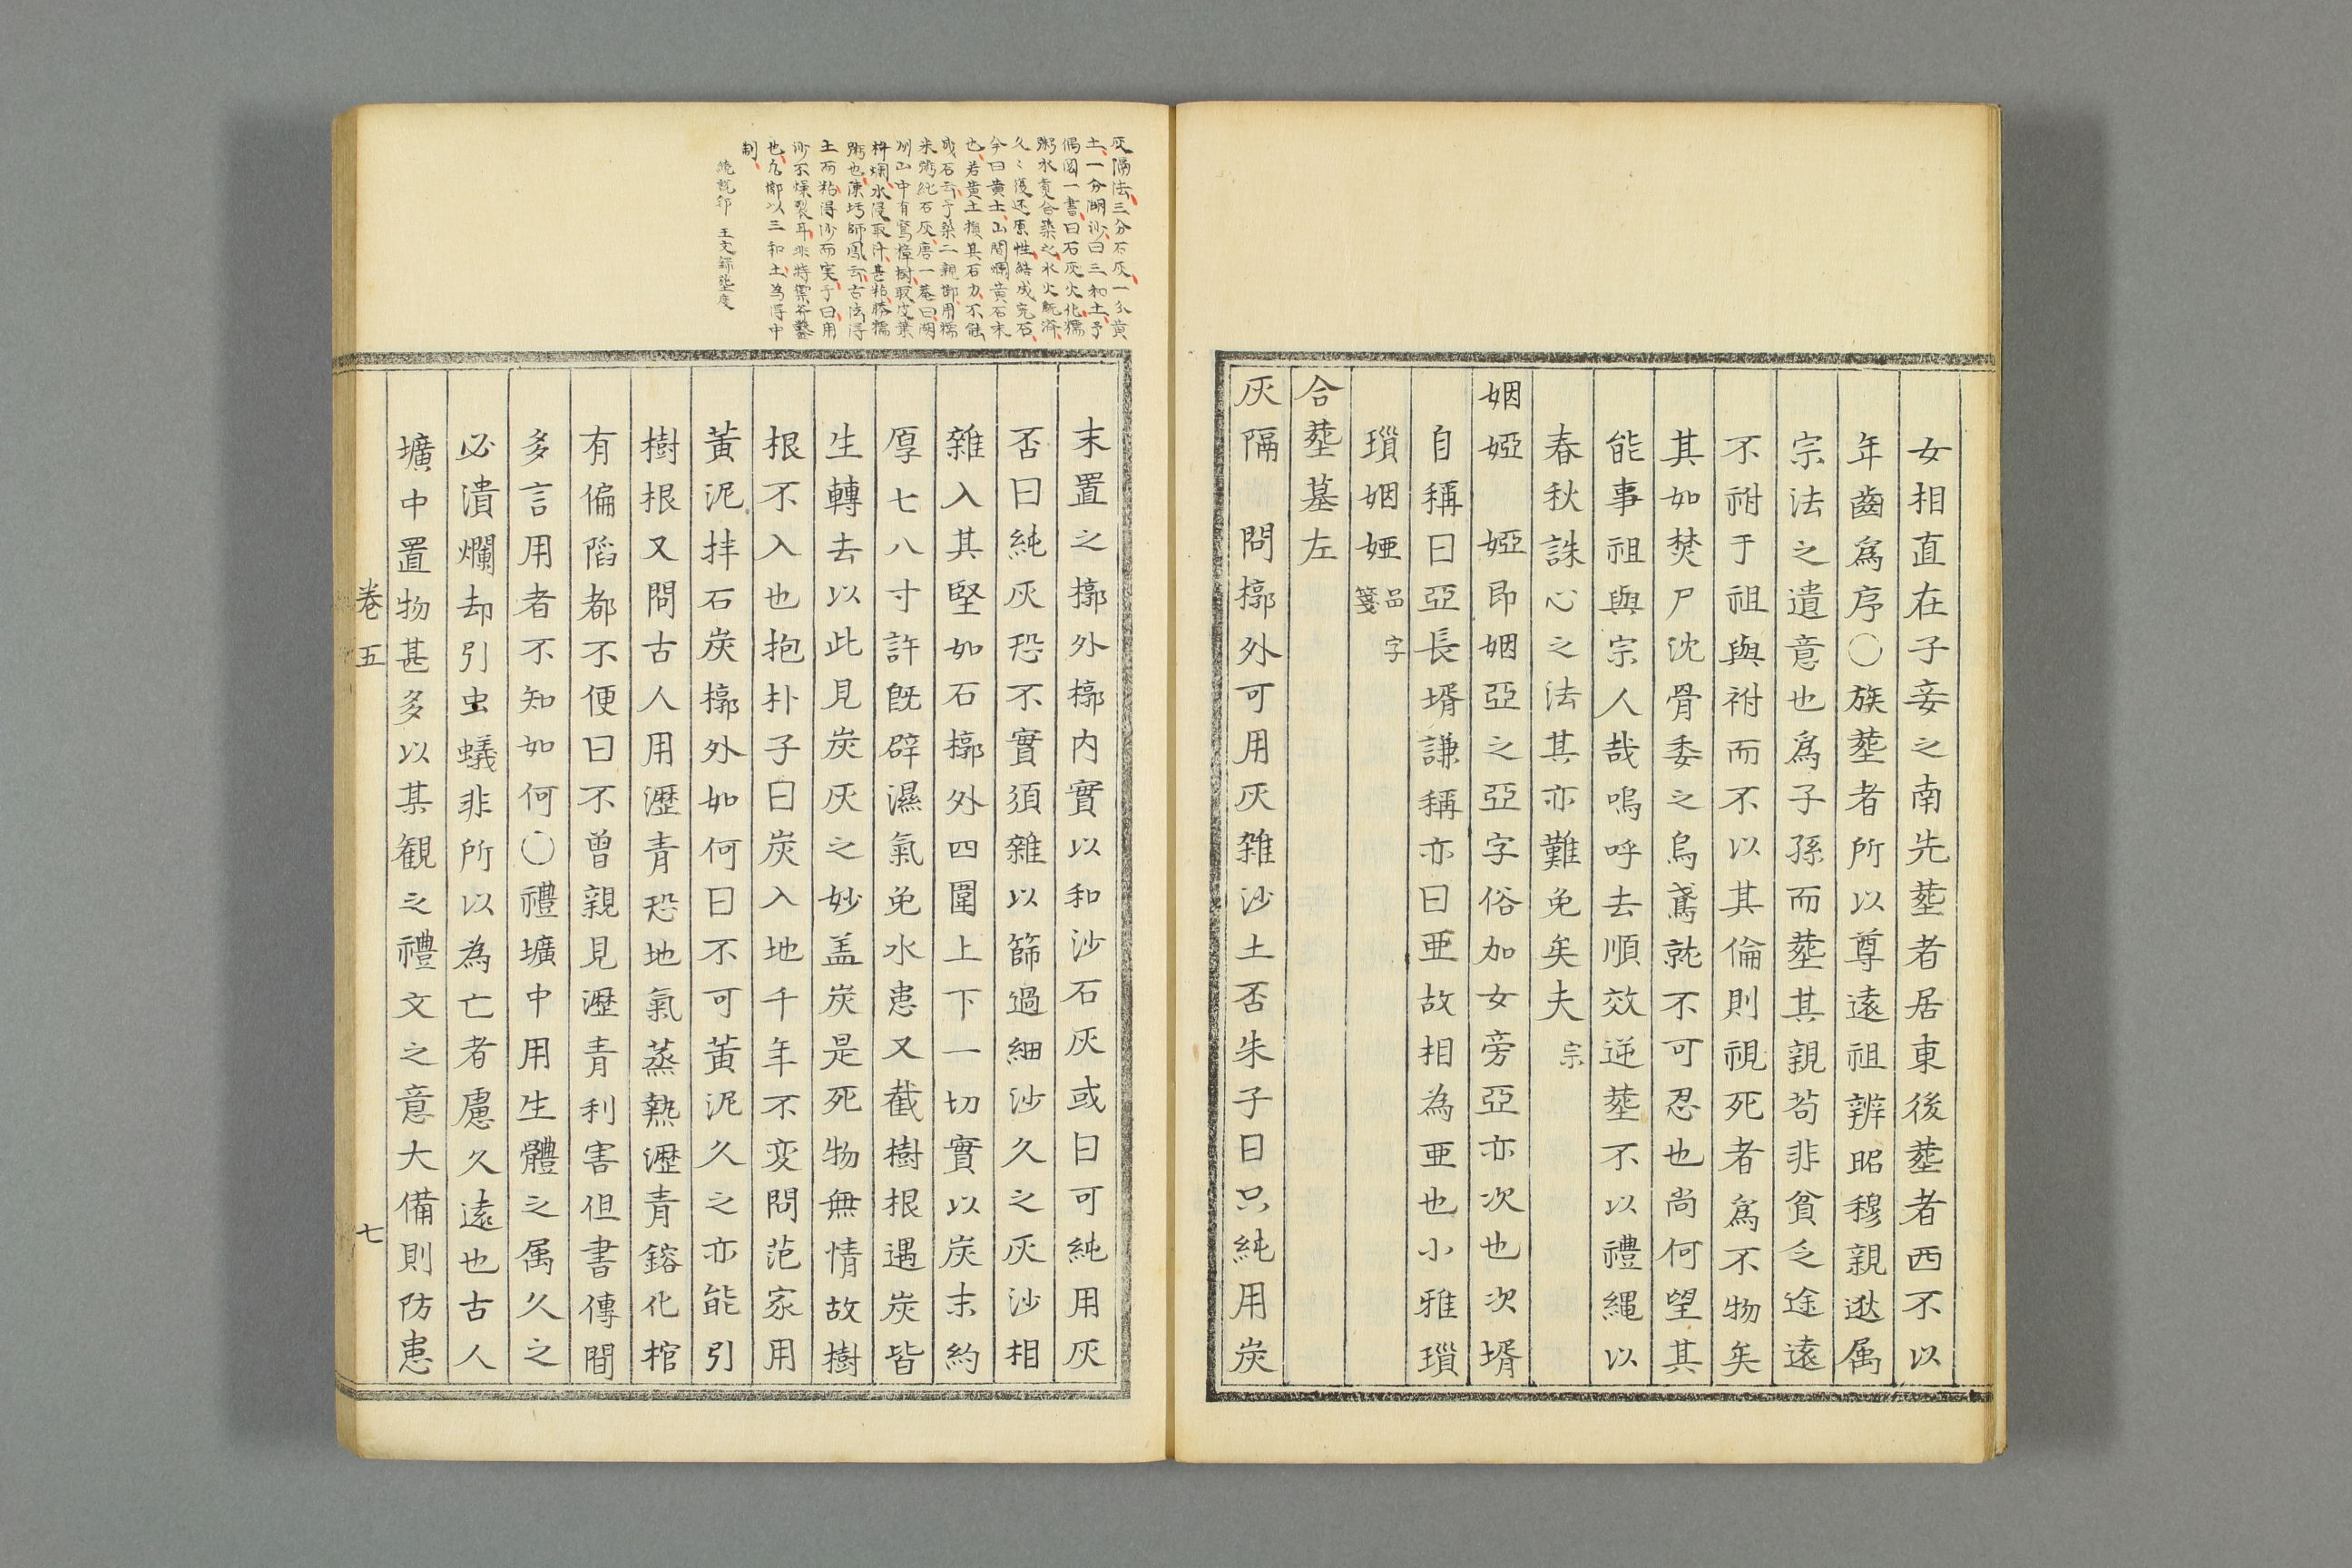 女相直在子妾之南先塟者居東後塟者西不以
年齒爲序〇族塟者所以尊遠祖辨昭穆親逖属
宗法之遺意也爲子孫而塟其親苟非貧乏途遠
不祔于祖與祔而不以其倫則視死者爲不物矣
其如焚尸沈骨委之烏鳶就不可忍也尚何望其
能事祖與宗人哉嗚呼去順效逆塟不以禮繩以
春秋誅心之法其亦難免矣夫宗
姻婭 婭即姻亞之亞字俗加女旁亞亦次也次壻
自稱曰亞長壻謙稱亦曰亜故相為亜也小雅瑣
瑣姻婭品字箋
合塟墓左
灰隔 問槨外可用灰雑沙土否朱子曰只純用炭
灰隔法三分石灰一分黄
土一分湖沙曰三和土予
偶閲一書曰石灰火化糯
粥水煮合築之水火既濟
久〻復还原性結成完石
今曰黄土山間爛黄石末
也若黄土損其石力不能
成石云予築二親御用糯
米粥純石灰唐一菴曰閩
州山中有鴛樟樹取皮葉
杵爛水浸取汁甚粘勝糯
粥也陳圬師鳳云古法得
土而粘得沙而実予曰用
沙不燥裂耳非特禦斧鑿
也凢鄉以三和土為得中
制
続説郛 王文禄塟度
末置之槨外槨内實以和沙石灰或曰可純用灰
否曰純灰恐不實須雜以篩過細沙久之灰沙相
雜入其堅如石槨外四圍上下一切實以炭末約
厚七八寸許既辟濕氣免水患又截樹根遇炭皆
生轉去以此見炭灰之妙盖炭是死物無情故樹
根不入也抱朴子曰炭入地千年不変問范家用
黃泥拌石炭槨外如何曰不可黃泥久之亦能引
樹根又問古人用瀝青恐地氣蒸熱瀝青鎔化棺
有偏陷都不便曰不曾親見瀝青利害但書傳間
多言用者不知如何〇禮壙中用生體之属久之
必潰爛却引虫蟻非所以為亡者慮久遠也古人
壙中置物甚多以某観之禮文之意大備則防患
卷五
七